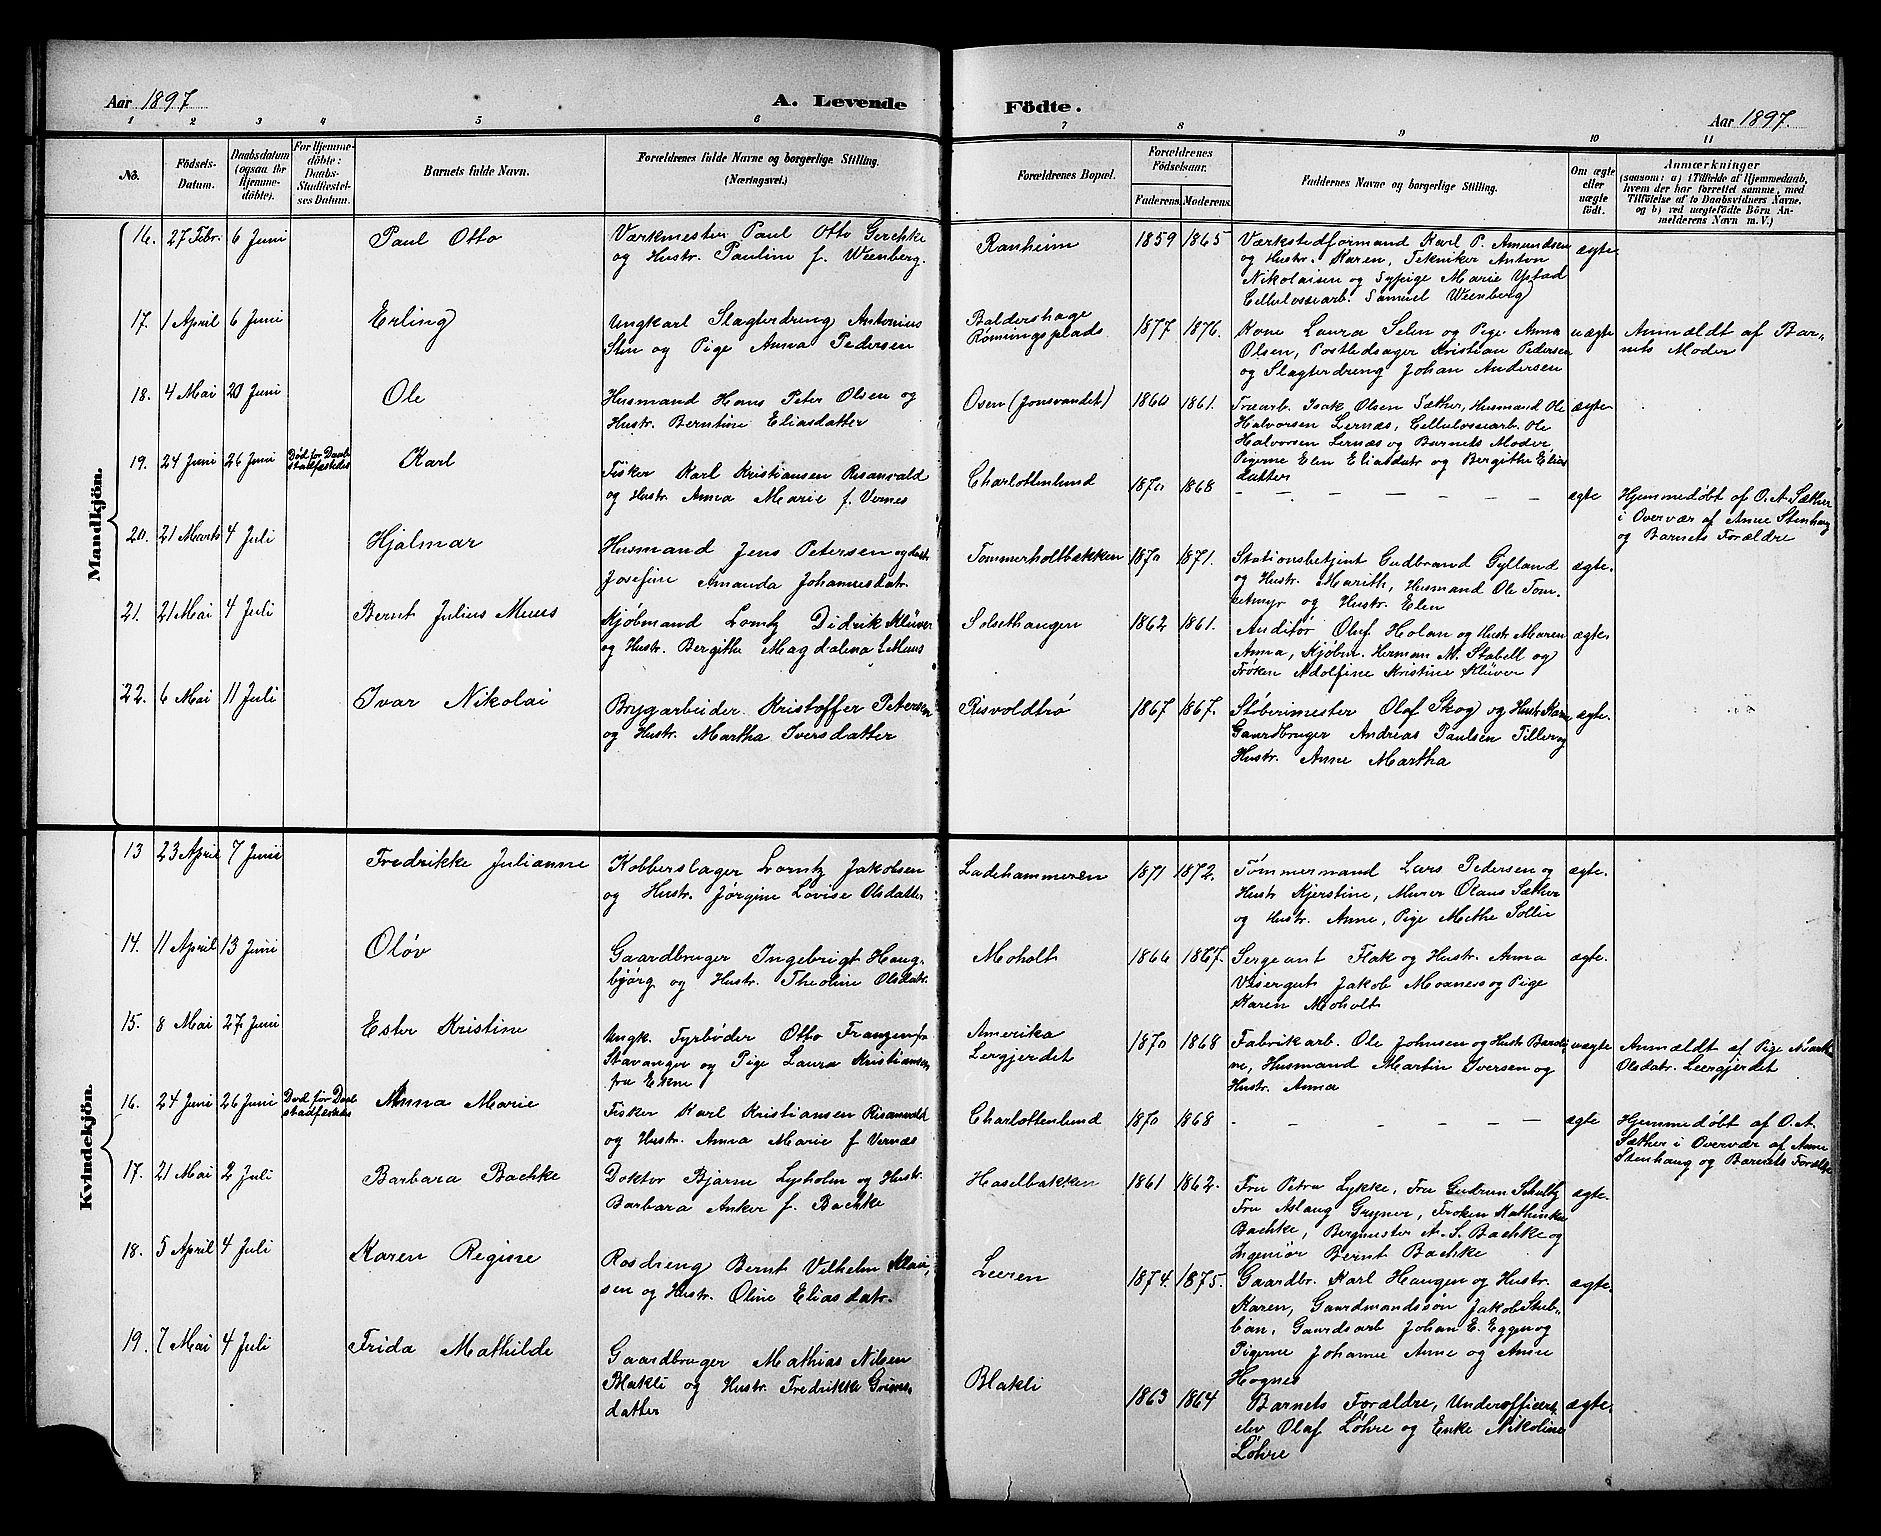 Aar 1897
A. Levende Födte.
Aar 1897.
1 2 3 4 5 6 7 8 9 10 11
No.
Födsels-Datum.
Daabsdatum (ogsaa for Hjemme-döbte).
For Hjemme-döbte: Daabs-Stadfæstel-ses Datum.
Barnets fulde Navn.
Forældrenes fulde Navne og borgerlige Stilling.
(Næringsvei.)
Forældrenes Bopæl.
Forældrenes Födselsaar.
Faderens. Moderens.
Faddernes Navne og borgerlige Stilling.
Om ægte eller uægte födt.
Anmærkninger
(saasom: a) i Tilfælde af Hjemmedaab,
hvem der har forrettet samme, med
Tilföielse af to Daabsvidners Navne,
og b) ved uægtefödte Börn An-
melderens Navn m. V.)
Mandkjön.
16. 27 Febr. 6 Juni Paul Otto
Værkmester Paul Otto Gerchke
og Hustr. Pauline f. Weenberg.
Ranheim 1859 1865
Værkstedformand Karl P. Amundsen
og Hustr. Karen, Tekniker Anton
Nikolaisen og Sypige Marie Ystad
Cellulossearb. Samuel Weenberg
ægte
17. 1 April 6 Juni Erling
Ungkarl Slagterdreng Antonius
Sten og Pige Anna Pedersen
Baldershage
Rømningsplads 1877 1876.
Kone Laura Selen og Pige Anna
Olsen, Postledsager Kristian Pedersen
og Slagterdreng Johan Andersen
uægte
Anmældt af Bar-
nets Moder
18. 4 Mai 20 Juni Ole
Husmand Hans Peter Olsen og
Hustr. Berntine Eliasdatter
Osen (Jonsvandet) 1860 1861.
Træarb. Isak Olsen Sæther, Husmand Ole
Halvorsen Lernæs, Cellulossearb. Ole
Halvorsen Lernæs og Barnets Moder
Pigerne Elen Eliasdatr og Bergithe Elias
datter
ægte
19. 24 Juni 26 Juni Død før Daab stadfæstedes Karl
Fisker Karl Kristiansen Risanvald
og Hustr. Anna Marie f. Vernes
Charlottenlund 1870 1868
— — — — — — —
ægte
Hjemmedøbt af O. A. Sæther
i Overvær af Anne Stenhaug
og Barnets Forældre
20. 21 Marts 4 Juli Hjalmar
Husmand Jens Petersen og Hustr.
Josefine Amanda Johannesdatr.
Tommerholtbækken 1870 1871.
Stationsbetjent Gudbrand Gylland
og Hustr. Marith, Husmand Ole Tom-
setmyr og Hustr. Elen
ægte.
21. 21 Mai 4 Juli Bernt Julius Muus
Kjøbmand Lorntz Didrik Klüver
og Hustr. Bergithe Magdalina f. Muus
Solsethaugen 1862 1861.
Auditør Oluf Holan og Hustr Maren
Anna, Kjøbm. Herman M. Stabell og
Frøken Adolfine Kristine Klüver
ægte.
22. 6 Mai 11 Juli Ivar Nikolai
Brygarbeider Kristoffer Petersen
og Hustr. Martha Iversdatter
Risvoldtrø 1867 1867.
Støberimester Olaf Skog og Hustr Karen
Gaardbruger Andreas Paulsen Tiller og
Hustr. Anne Martha
ægte.
Kvindekjön.
13 23 April 7 Juni Fredrikke Julianne
Kobberslager Lorntz Jakobsen
og Hustr. Jørgine Lovise Olsdatter
Ladehammeren 1871 1872.
Tømmermand Lars Pedersen og
Hustr Kjerstine, Murer Olaus Sæther
og Hustr. Anne, Pige Methe Sollie
ægte.
14. 11 April 13 Juni Oløv
Gaardbruger Ingebrigt Haug-
bjørg og Hustr. Theoline Olsdatr.
Moholt 1866 1867.
Sergeant Flak og Hustr. Anna
Visergut Jakob Moxness og Pige
Karen Moholt
ægte.
15. 8 Mai 27 Juni Ester Kristine
Ungk. Fyrbøder Otto Franzen fra
Stavanger og Pige Laura Kristiansen
fra Ekne
Amerika
Lergjerdet 1870 1868
Fabrikarb. Ole Johnsen og Hustr Bardi-
ne, Husmand Martin Iversen og
Hustr. Anna
uægte
Anmældt af Pige Martha
Olsdatr. Leergjerdet
16. 24 Juni 26 Juni Død før Daab stadfæstedes Anna Marie
Fisker Karl Kristiansen Risanvald
og Hustr. Anna Marie f Vernæs
Charlottenlund 1870 1868
— — — — — — —
ægte
Hjemmedøbt af O. A.
Sæther i Overvær af Anne
Stenhaug og Barnets Forældre
17. 21 Mai 2 Juli Barbara Bachke
Doktor Bjarne Lysholm og Hustr.
Barbara Anker f. Bachke
Haselbakken 1861 1862.
Fru Petra Lykke, Fru Gudrun Schultz
Fru Aslaug Gryner, Frøken Kathinka
Bachke, Bergmester A. S. Bachke og
Ingeniør Bernt Bachke
ægte.
18. 5 April 4 Juli Karen Regine
Kosdreng Bernt Vilhelm Klau-
sen og Hustr. Oline Eliasdatr.
Leeren 1874. 1875.
Gaardbr. Karl Haugen og Hustr.
Karen, Gaardmandssøn Jakob Stub-
ban, Gaardsarb Johan E. Eggen og
Pigerne Johanne Anne og Anne
Hognes
ægte.
19. 7 Mai 4 Juli Frida Mathilde
Gaardbruger Mathias Nilsen
Blakli og Hustr. Fredrikke Grims-
datter
Blakli 1863 1864
Barnets Forældre, Underofficers-
elev Olaf Løhre og Enke Nikoline
Løhre
ægte.